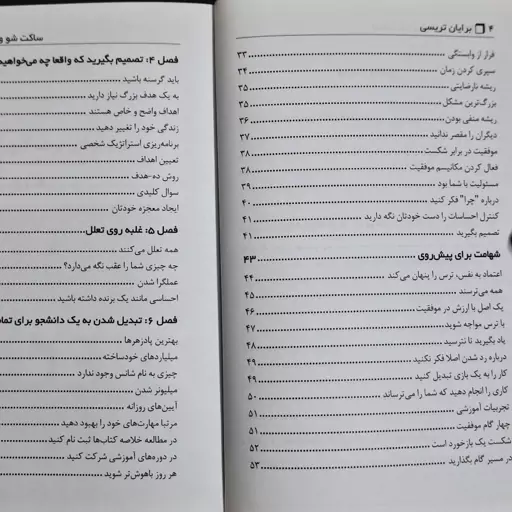 ۴ برایان تریسی
فرار از وابستگی ۳۳
سپری کردن زمان ۳۴
ریشه نارضایتی ۳۵
بزرگ‌ترین مشکل ۳۵
ریشه منفی بودن ۳۶
دیگران را مقصر ندانید ۳۷
موفقیت در برابر شکست ۳۸
فعال کردن مکانیسم موفقیت ۳۸
مسئولیت با شما بود ۳۹
درباره "چرا" فکر کنید ۴۰
کنترل احساسات را دست خودتان نگه دارید ۴۱
تصمیم بگیرید ۴۱
شهامت برای پیش‌روی ۴۳
اعتماد به نفس، ترس را پنهان می‌کند ۴۴
همه می‌ترسند ۴۵
یک اصل با ارزش در موفقیت ۴۶
با ترس مواجه شوید ۴۷
یاد بگیرید تا نترسید ۴۸
درباره رد شدن اصلا فکر نکنید ۴۹
کار را به یک بازی تبدیل کنید ۴۹
کاری را انجام دهید که شما را می‌ترساند ۵۰
تجربیات آموزشی ۵۱
چهار گام موفقیت ۵۱
شکست یک بازخورد است ۵۲
در مسیر گام بگذارید ۵۳
ساکت شو و
فصل ۴: تصمیم بگیرید که واقعا چه می‌خواهید
باید گرسنه باشید
به یک هدف بزرگ نیاز دارید
اهداف واضح و خاص هستند
زندگی خود را تغییر دهید
برنامه‌ریزی استراتژیک شخصی
تعیین اهداف
روش ده-هدف
سوال کلیدی
ایجاد معجزه خودتان
فصل ۵: غلبه روی تعلل
همه تعلل می‌کنند
چه چیزی شما را عقب نگه می‌دارد؟
عملگرا شدن
احساسی مانند یک برنده داشته باشید
فصل ۶: تبدیل شدن به یک دانشجو برای
بهترین پادزهرها
میلیاردهای خودساخته
چیزی به نام شانس وجود ندارد
میلیونر شدن
آیین‌های روزانه
مرتبا مهارت‌های خود را بهبود دهید
در مطالعه خلاصه کتاب‌ها ثبت نام کنید
در دوره‌های آموزشی شرکت کنید
هر روز باهوش‌تر شوید